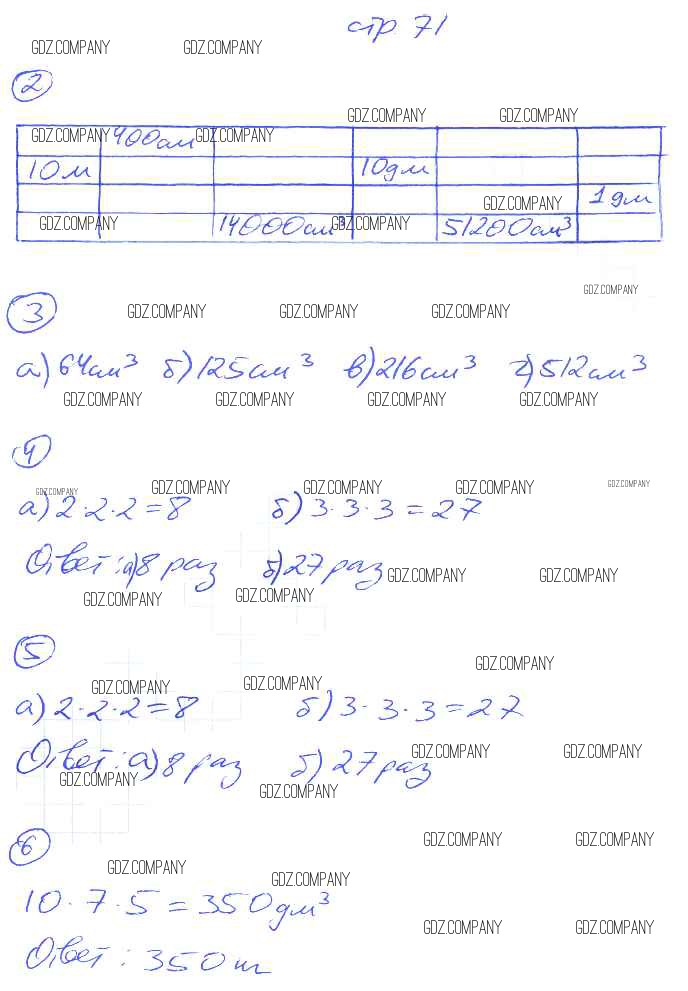 стр 71
GDZ.COMPANY GDZ.COMPANY
2
GDZ.COMPANY GDZ.COMPANY
GDZ.COMPANY 400см GDZ.COMPANY
10м 10дм
GDZ.COMPANY 1дм
GDZ.COMPANY 14000см³ GDZ.COMPANY 51200см³
GDZ.COMPANY
3 GDZ.COMPANY GDZ.COMPANY GDZ.COMPANY
а) 64см³ б) 125см³ в) 216см³ г) 512см³
GDZ.COMPANY GDZ.COMPANY GDZ.COMPANY GDZ.COMPANY
4
GDZ.COMPANY GDZ.COMPANY GDZ.COMPANY GDZ.COMPANY GDZ.COMPANY
а) 2·2·2=8 б) 3·3·3=27
Ответ: а) 8 раз б) 27 раз GDZ.COMPANY GDZ.COMPANY
GDZ.COMPANY GDZ.COMPANY
5
GDZ.COMPANY
GDZ.COMPANY GDZ.COMPANY
а) 2·2·2=8 б) 3·3·3=27
GDZ.COMPANY GDZ.COMPANY
Ответ: а) 8 раз б) 27 раз
GDZ.COMPANY GDZ.COMPANY
6
GDZ.COMPANY GDZ.COMPANY
GDZ.COMPANY GDZ.COMPANY
10·7·5=350дм³
GDZ.COMPANY GDZ.COMPANY
Ответ: 350 т